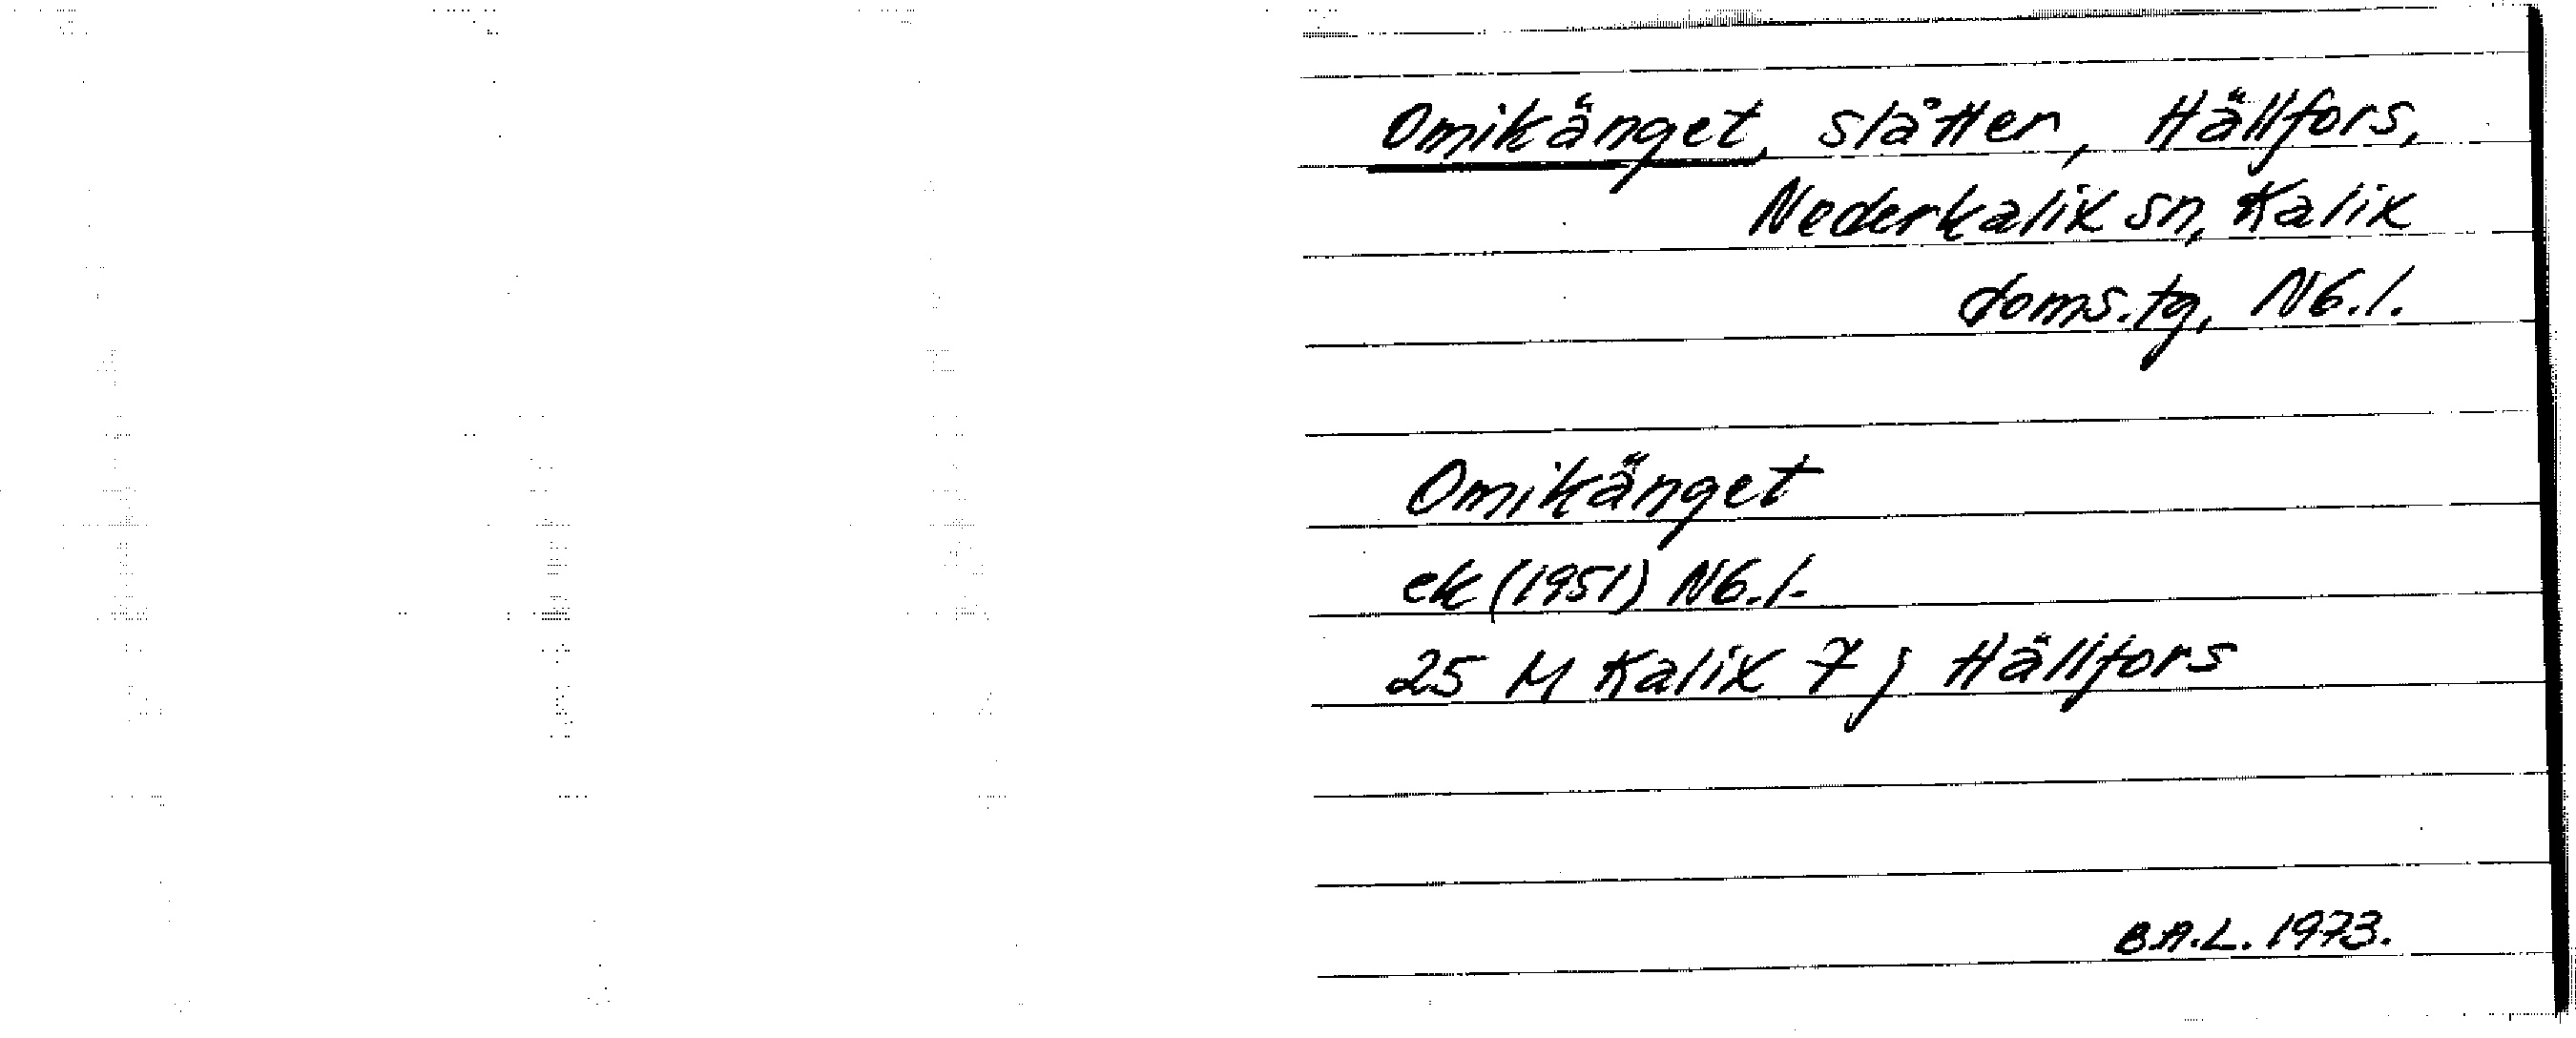 Omikänget, slåtter, Hällfors,
Nederkalix sn, Kalix
doms.tg, Nb.l.
Omikänget
ek (1951) Nb.l.
25 M Kalix 7 j Hällfors
B.A.L. 1973.